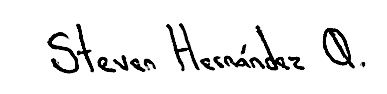 Steven Hernández Q.